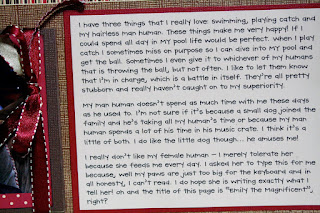 I have three things that I really love: swimming, playing catch and
my hairless man human. These things make me very happy! If I
could spend all day in MY pool life would be perfect. When I play
catch I sometimes miss on purpose so I can dive into MY pool and
get the ball. Sometimes I even give it to whichever of my humans
that is throwing the ball, but not often. I like to let them know
that I'm in charge, which is a battle in itself. They're all pretty
stubborn and really haven't caught on to my superiority.
My man human doesn't spend as much time with me these days
as he used to. I'm not sure if it's because a small dog joined the
family and he's taking all my human's time or because my man
human spends a lot of his time in his music crate. I think it's a
little of both. I do like the little dog though... he amuses me!
I really don't like my female human - I merely tolerate her
because she feeds me every day. I asked her to type this for me
because, well my paws are just too big for the keyboard and in
all honesty, I can't read. I do hope she is writing exactly what I
tell her! Oh and the title of this page is "Emily the Magnificent",
right?